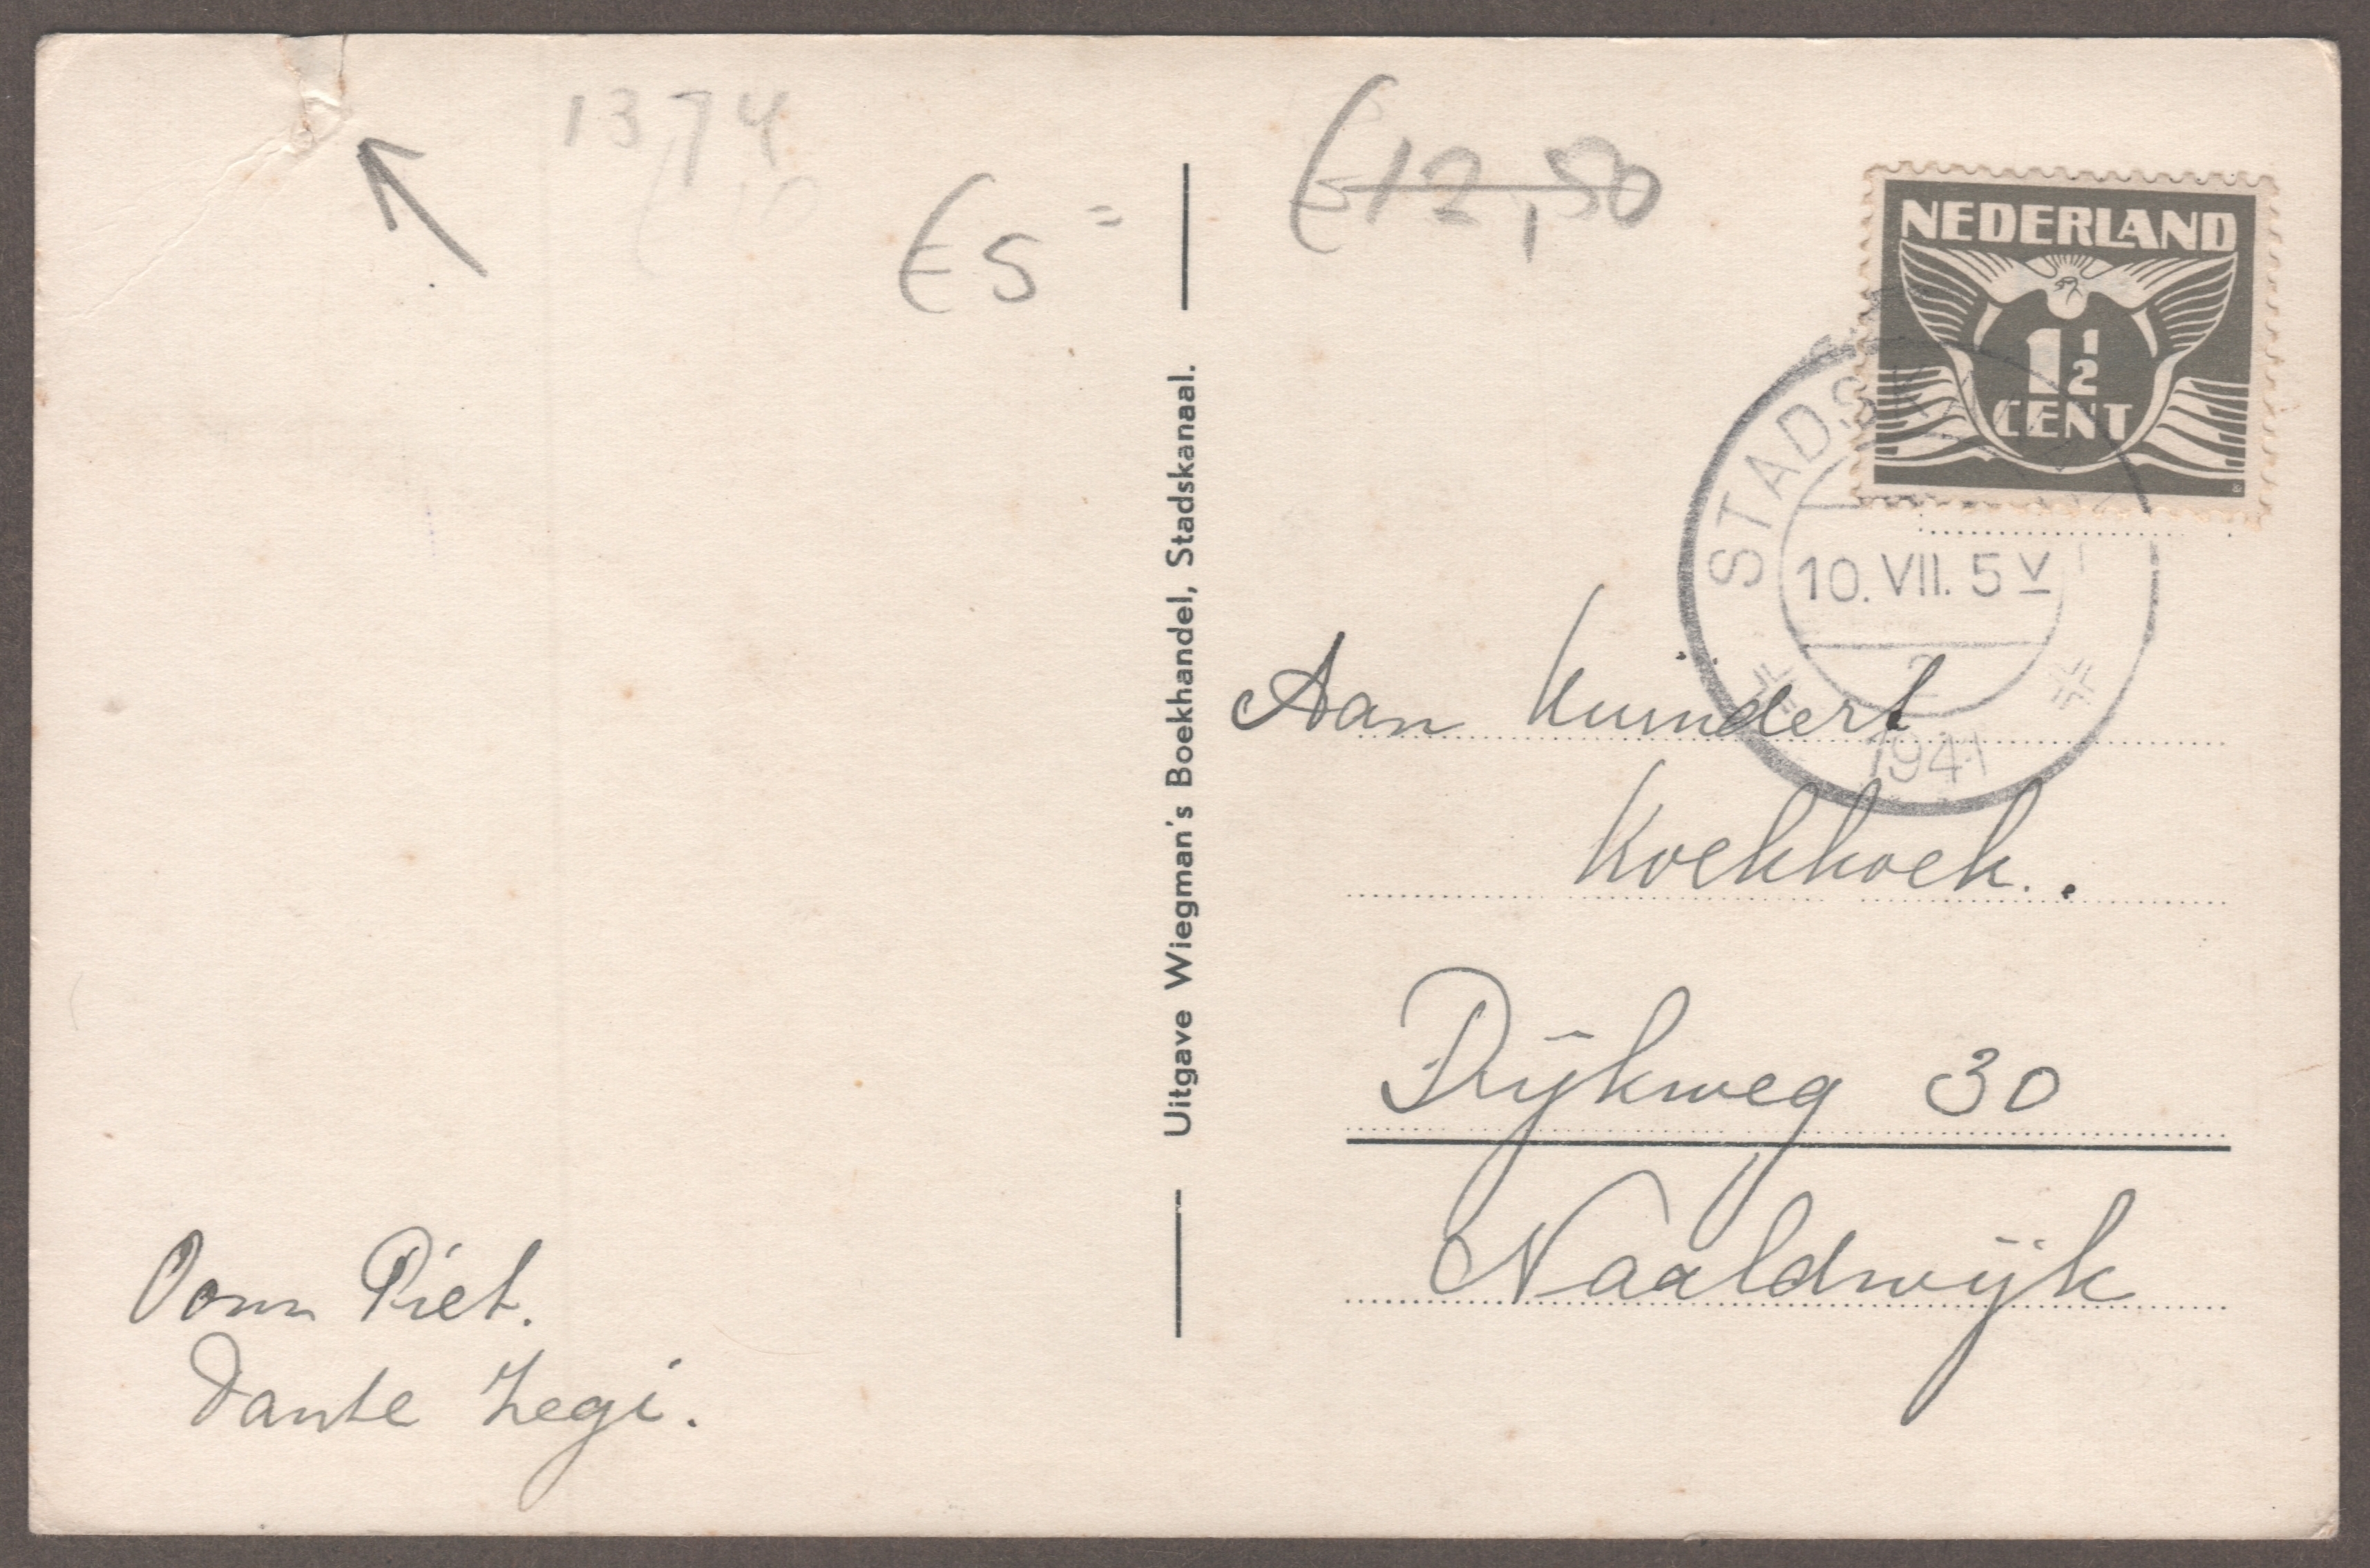 1374
€ 5 =
€ 12,50
NEDERLAND
1 1/2
CENT
STADSK
10. VII. 5 V
2
1941
Uitgave Wiegman's Boekhandel, Stadskanaal.
Aan
Koekkoek.
Dijkweg 30
Naaldwijk
Oom Piet.
Tante